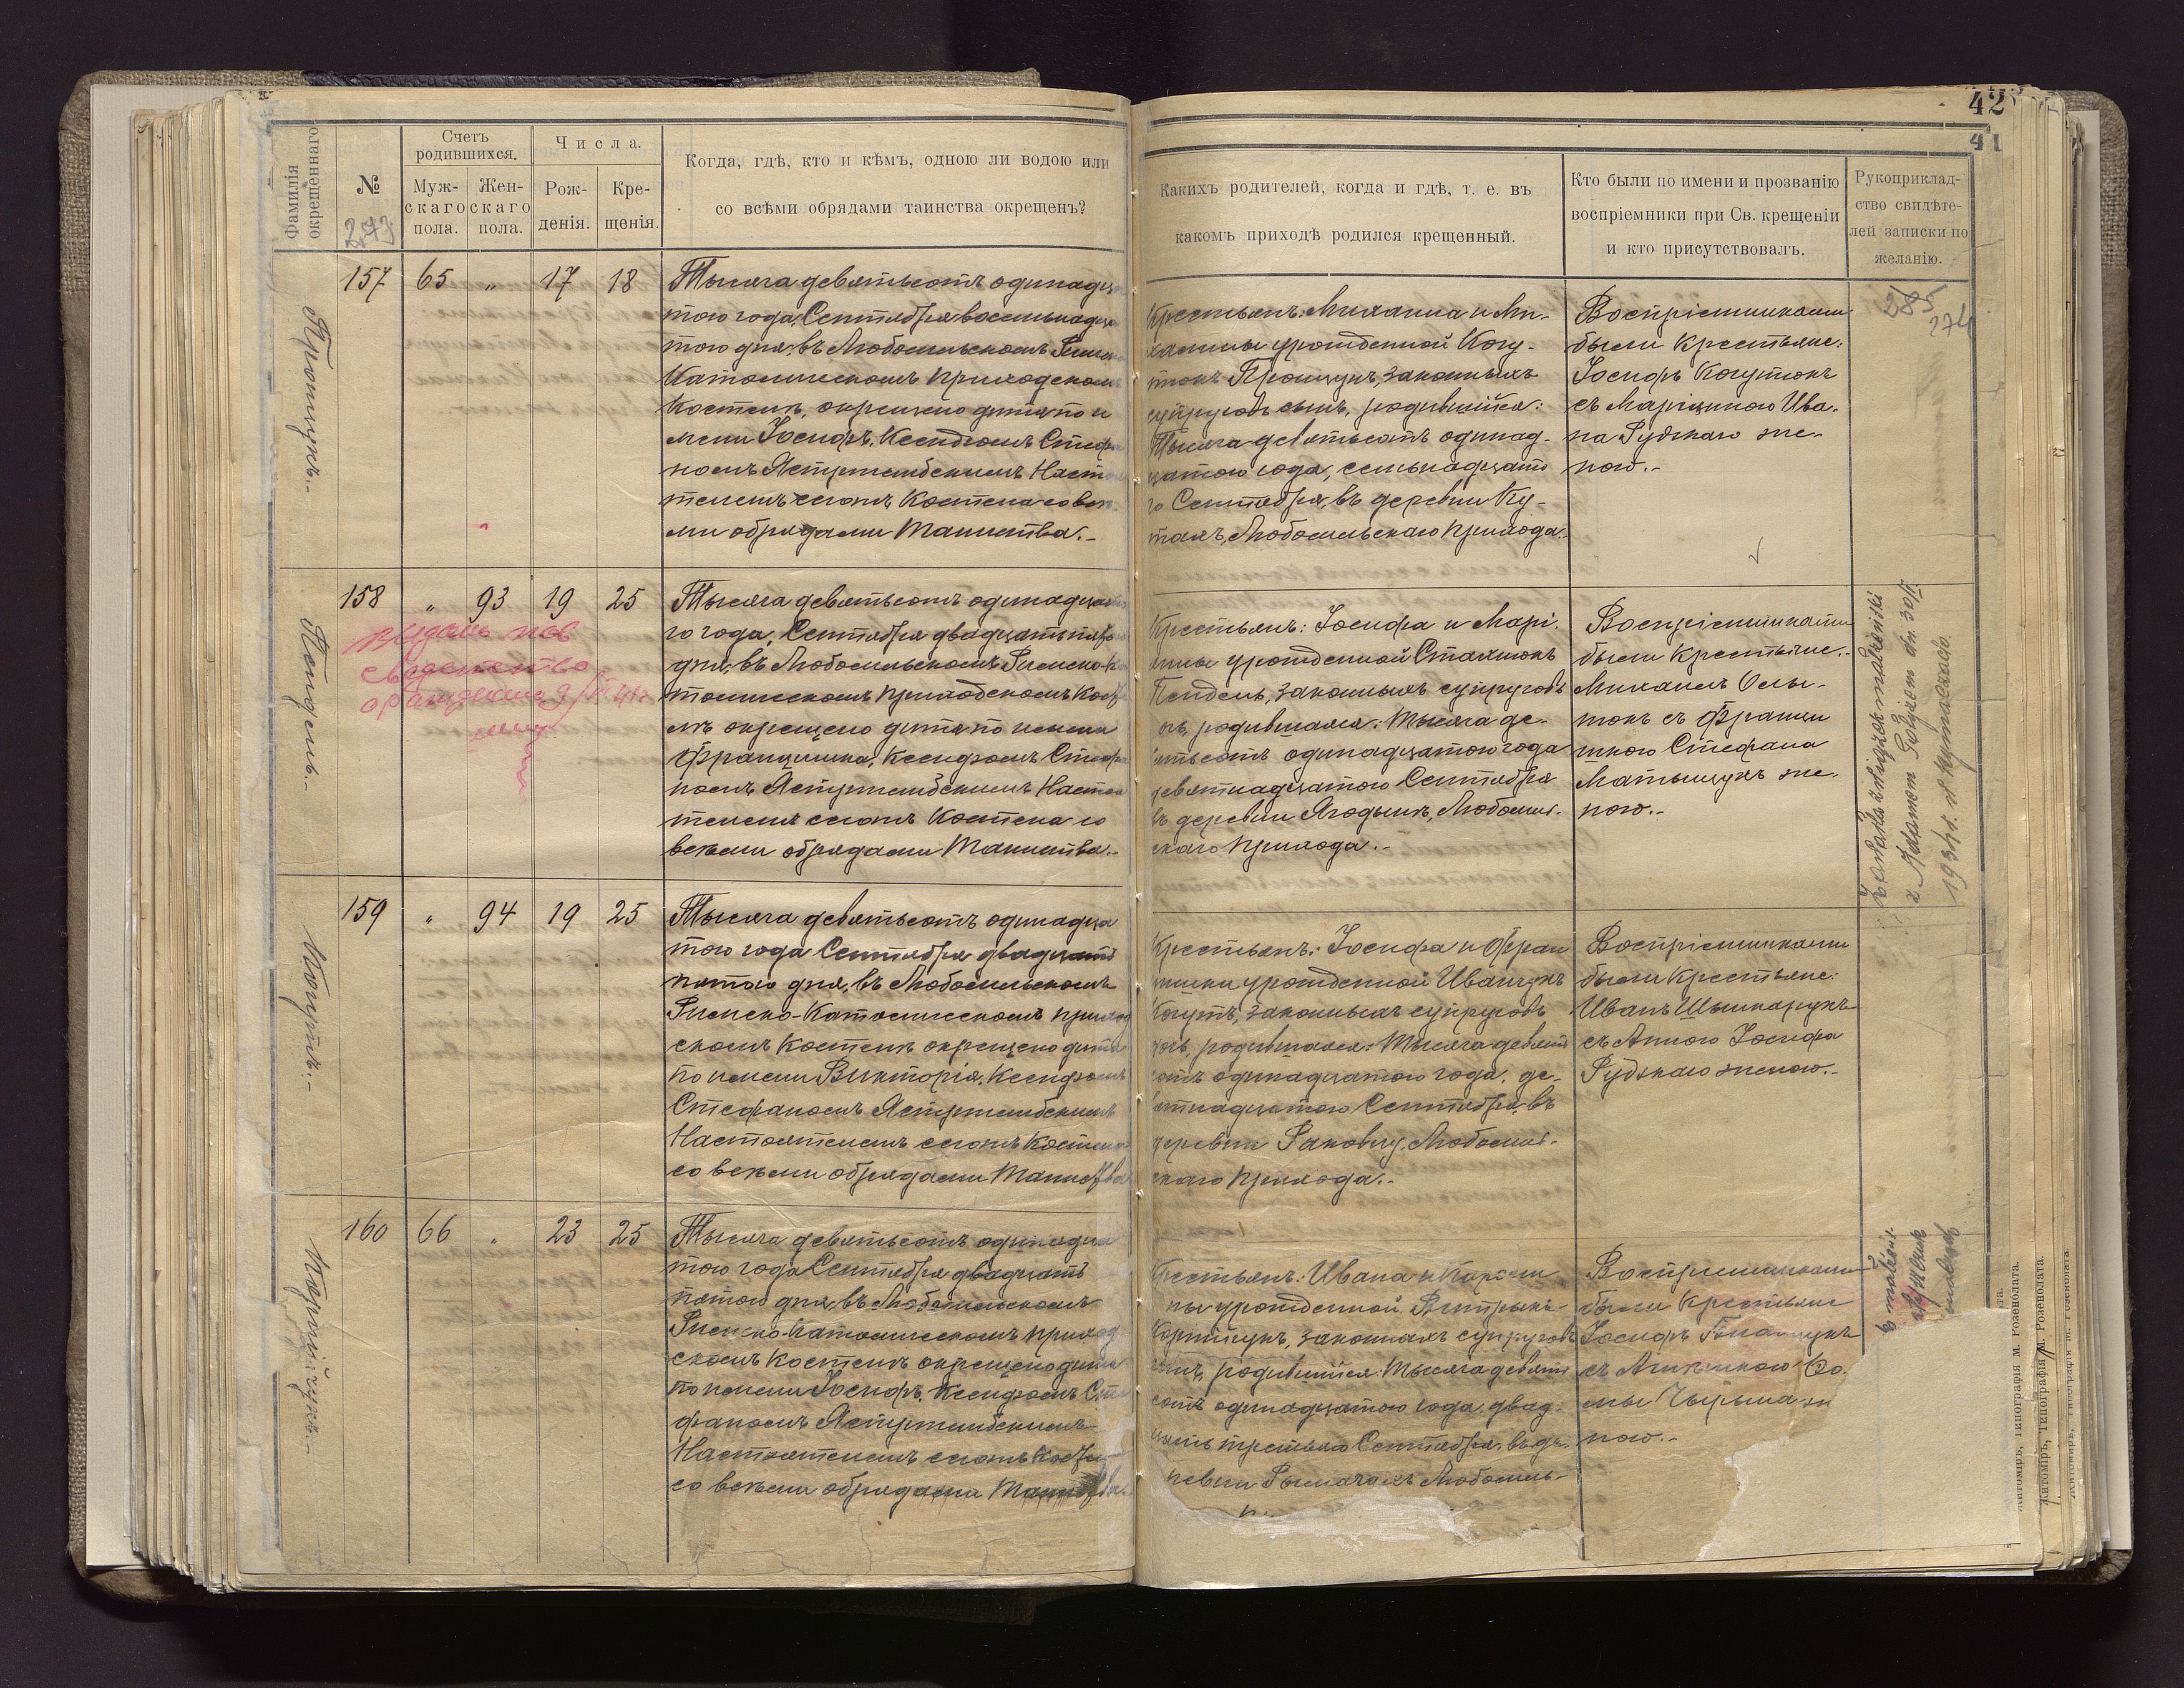 42
41
Фамилія окрещеннаго
№
273
Счетъ родившихся.
Муж-скаго пола.
Жен-скаго пола.
Числа.
Рож-денія.
Кре-щенія.
Когда, гдѣ, кто и кѣмъ, одною ли водою или
со всѣми обрядами таинства окрещенъ?
Какихъ родителей, когда и гдѣ, т. е. въ
какомъ приходѣ родился крещенный.
Кто были по имени и прозванію
воспріемники при Св. крещеніи
и кто присутствовалъ.
Рукоприклад-
ство свидѣте-
лей записки по
желанію.
157 65 " 17 18
Тысяча девятьсотъ одинадца
того года, Сентября восемьнадца
того дня, въ Любомльскомъ Римско
Католическомъ приходскомъ
Костелѣ, окрещено дитя по и
мени Іосифъ, Ксендзомъ Стефа
номъ Ястржембскимъ Насто
телемъ сего Костела со всѣ
ми обрядами Таинства.-
Крестьянъ: Михаила и Ми-
халины урожденной Когу-
тюкъ, законныхъ
супруговъ сынъ, родившійся:
Тысяча девятьсотъ одинад-
цатого года, семьнадцато
го Сентября, въ деревни Ку-
тахъ, Любомльскаго прихода.-
Воспріемниками
были Крестьяне:
Іосифъ Когутюкъ
съ Маріянною Ива-
на Рудзкаго же-
ною.-
285
274
158 " 93 19 25
Пендель.-
Тысяча девятьсотъ одинадцато
го года, Сентября двадцать пято
дня, въ Любомльскомъ Римско Ка
толическомъ приходскомъ Косте
лѣ окрещено дитя по имени
Францишка, Ксендзомъ Стефа
номъ Ястржембскимъ Настоя
телемъ сего Костела со
всѣми обрядами Таинства.-
Крестьянъ: Іосифа и Марі-
янны урожденной Стахнюкъ
Пендель, законныхъ супруговъ
родившаяся: Тысяча де-
вятьсотъ одинадцатого года
девятнадцатого Сентября
въ деревни Ягодынѣ, Любомль-
скаго прихода.-
Воспріемниками
были Крестьяне:
Михаилъ
съ Францы
шкою Стефана
Матыщукъ же-
ною.-
159 " 94 19 25
Когутъ.-
Тысяча девятьсотъ одинадца
того года Сентября двадцать
пятого дня, въ Любомльскомъ
Римско-Католическомъ приход
скомъ Костелѣ окрещено дитя
по имени Викторія, Ксендзомъ
Стефаномъ Ястржембскимъ
Настоятелемъ сего Костела
со всѣми обрядами Таинства
Крестьянъ: Іосифа и Фран
цишки урожденной Иванчукъ
Когутъ, законныхъ супруговъ
дочь, родившаяся: Тысяча девять
сотъ одинадцатого года, де-
вятнадцатого Сентября, въ
деревни Любомль-
скаго прихода.-
Воспріемниками
были Крестьяне:
Иванъ Шинкарукъ
съ Анною Іосифа
Рудзкаго женою.-
160 66 " 23 25
Тысяча девятьсотъ одинадца
того года Сентября двадцать
пятого дня, въ Любомльскомъ
Римско-Католическомъ приход
скомъ Костелѣ окрещено дитя
по имени Іосифъ, Ксендзомъ Сте
фаномъ Ястржембскимъ
Настоятелемъ сего Косте
со всѣми обрядами Таинства
Крестьянъ: Ивана и
ны урожденной
законныхъ супруговъ
сынъ, родившійся: Тысяча девять
сотъ одинадцатого года двад-
цать третьяго Сентября, въ де-
ревни Рымачахъ Любомль-
Воспріемниками
были Крестьяне
Іосифъ
съ
мы
ною.-
Житоміръ, типографія м. Розенблата.
Житоміръ, типографія м. Розенблата.